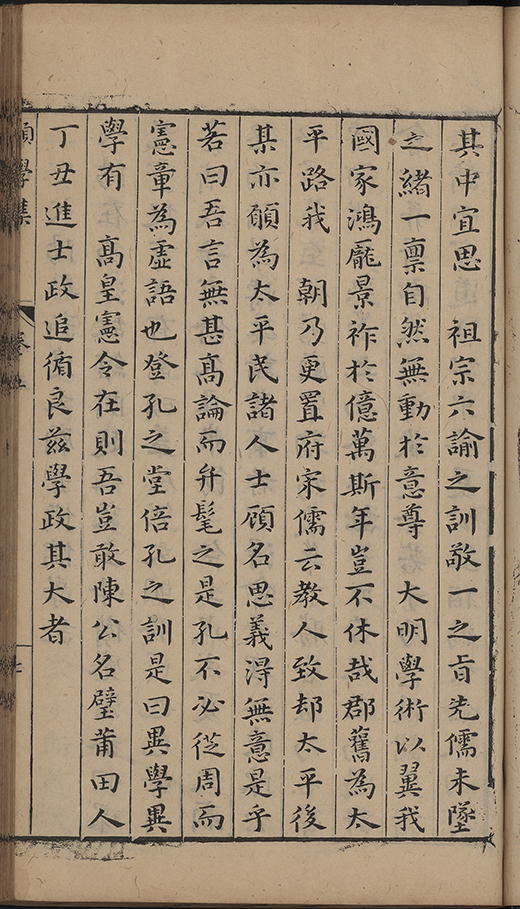 其中宜思　祖宗六諭之訓敬一之旨先儒未墜
之緒一禀自然無動於意尊　大明學術以翼我
國家鴻龎景祚於億萬斯年豈不休哉郡舊為太
平路我　朝乃更置府宋儒云教人致却太平後
某亦願為太平民諸人士顧名思義淂無意是乎
若曰吾言無甚髙論而弁髦之是孔不必從周而
憲章為虛語也登孔之堂倍孔之訓是曰異學異
學有　髙皇憲令在則吾豈敢陳公名璧莆田人
丁丑進士政追循良兹學政其大者
願學集　卷五